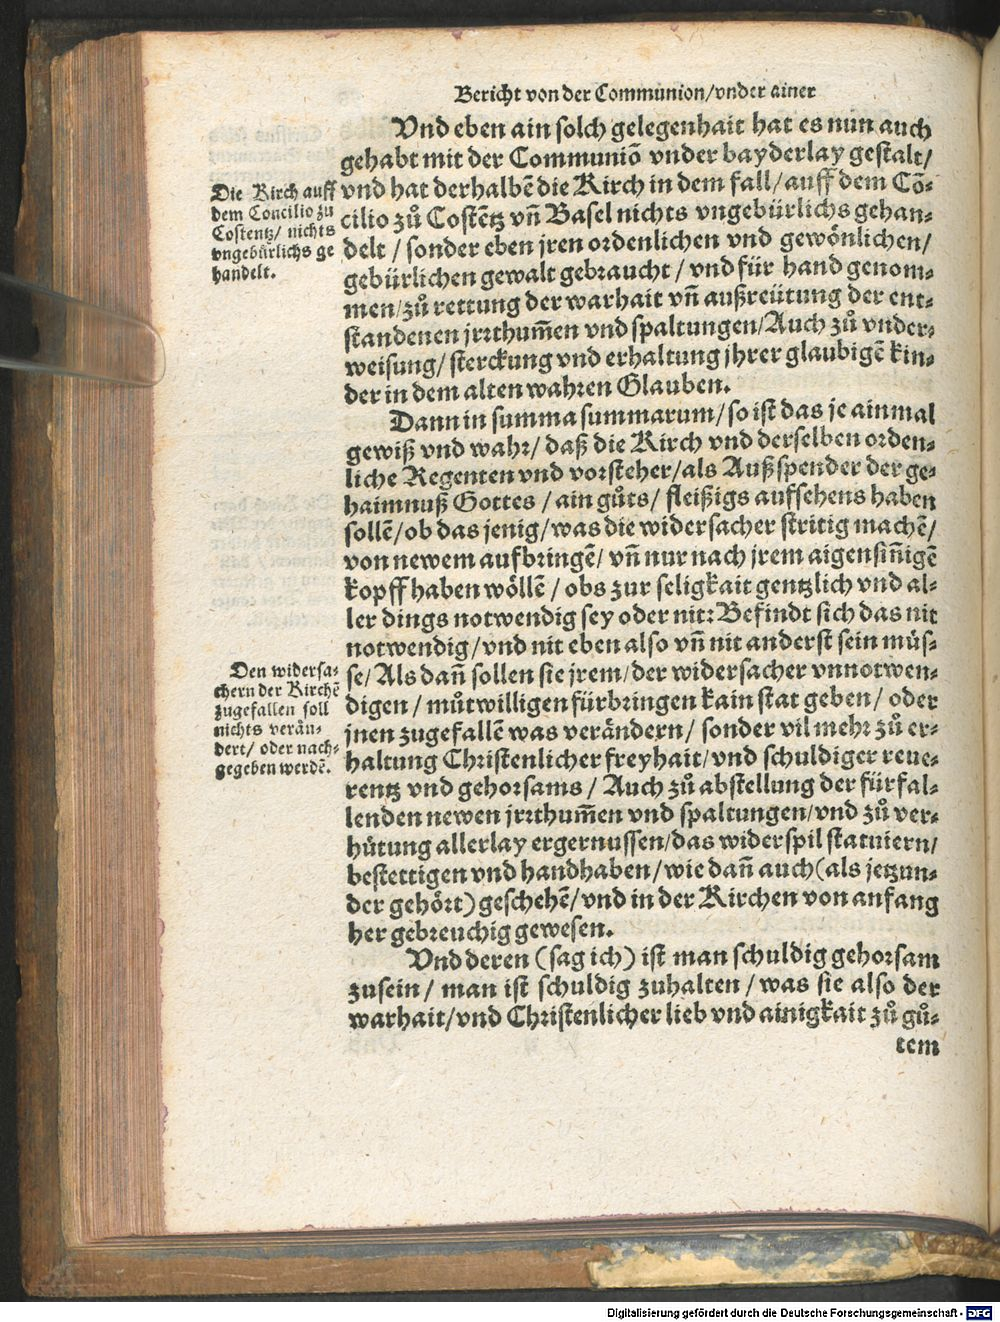 Bericht von der Communion/vnder ainer
Vnd eben ain solch gelegenhait hat es nun auch
gehabt mit der Communiō vnder bayderlay gestalt/
vnd hat derhalbē die Kirch in dem fall/auff dem Cō-
cilio zů Costētz vn̄ Basel nichts vngebürlichs gehan-
delt / sonder eben jren ordenlichen vnd gewönlichen/
gebürlichen gewalt gebraucht / vnd für hand genom-
men/zů rettung der warhait vn̄ außreütung der ent-
standenen jrrthum̄en vnd spaltungen/Auch zů vnder-
weisung/ sterckung vnd erhaltung jhrer glaubigē kin-
der in dem alten wahren Glauben.
Die Kirch auff
dem Concilio zu
Costentz/ nichts
vngebürlichs ge
handelt.
Dann in summa summarum/so ist das je ainmal
gewiß vnd wahr/ daß die Kirch vnd derselben orden-
liche Regenten vnd vorsteher/als Außspender der ge-
haimnuß Gottes / ain gůts/ fleißigs aufsehens haben
sollē/ob das jenig/was die widersacher stritig machē/
von newem aufbringē/ vn̄ nur nach jrem aigensin̄igē
kopff haben wöllē / obs zur seligkait gentzlich vnd al-
ler dings notwendig sey oder nit: Befindt sich das nit
notwendig/vnd nit eben also vn̄ nit anderst sein müs-
se/Als dan̄ sollen sie jrem/der widersacher vnnotwen-
digen / můtwilligen fürbringen kain stat geben/ oder
jnen zugefallē was verändern/ sonder vil mehr zů er-
haltung Christenlicher freyhait/vnd schuldiger reue-
rentz vnd gehorsams / Auch zů abstellung der fürfal-
lenden newen jrrthum̄en vnd spaltungen/vnd zů ver-
hütung allerlay ergernussen/das widerspil statuiern/
bestettigen vnd handhaben/wie dan̄ auch(als jetzun-
der gehört)geschehē/vnd in der Kirchen von anfang
her gebreuchig gewesen.
Den widersa-
chern der Kirchē
zugefallen soll
nichts verän-
dert/ oder nach-
gegeben werdē.
Vnd deren (sag ich) ist man schuldig gehorsam
zusein / man ist schuldig zuhalten / was sie also der
warhait/vnd Christenlicher lieb vnd ainigkait zů gů-
tem
Digitalisierung gefördert durch die Deutsche Forschungsgemeinschaft - DFG